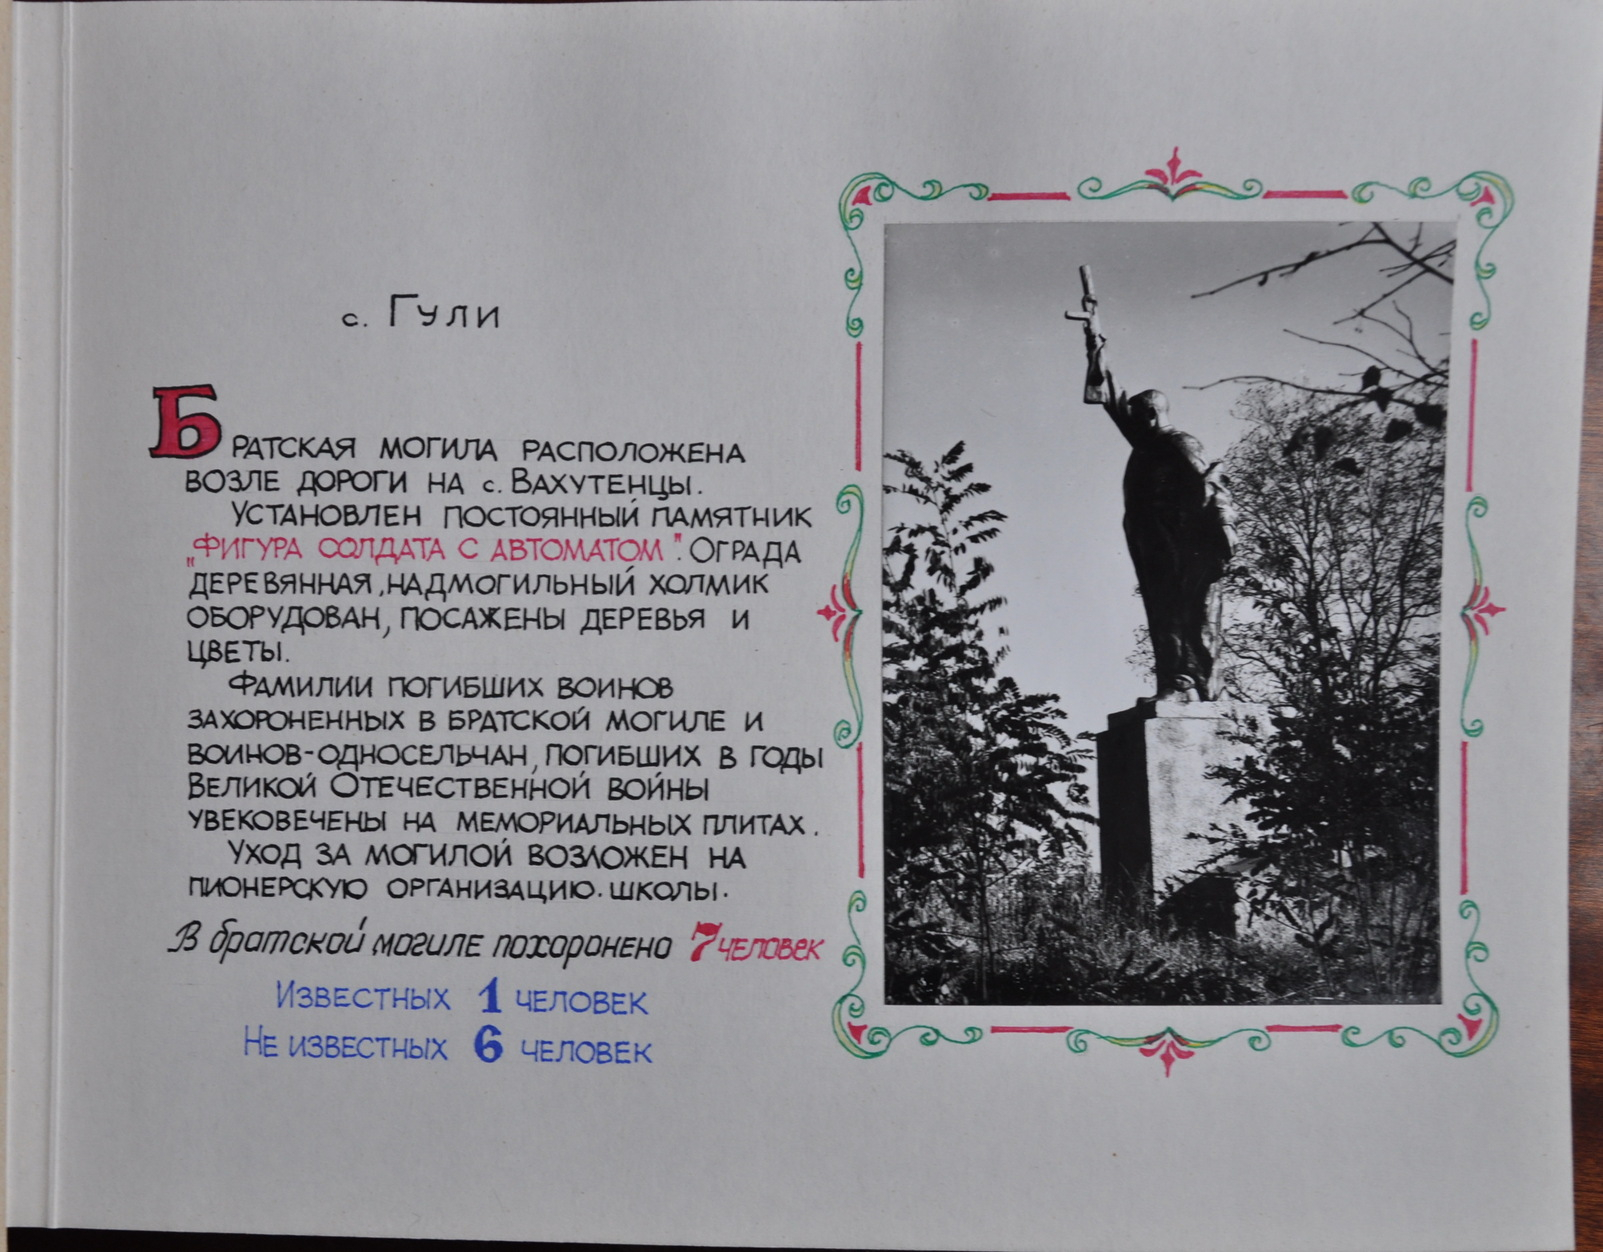 с. Гули
Братская могила расположена
возле дороги на с. Вахутенцы.
Установлен постоянный памятник
„Фигура солдата с автоматом". Ограда
деревянная, надмогильный холмик
оборудован, посажены деревья и
цветы.
Фамилии погибших воинов
захороненных в братской могиле и
воинов-односельчан, погибших в годы
Великой Отечественной войны
увековечены на мемориальных плитах.
Уход за могилой возложен на
пионерскую организацию. школы.
В братской могиле похоронено 7 человек
Известных 1 человек
Не известных 6 человек